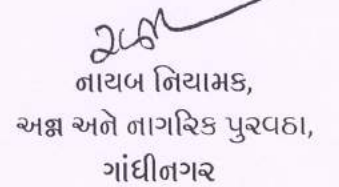 નાયબ નિયામક,
અન્ન અને નાગરિક પુરવઠા,
ગાંધીનગર